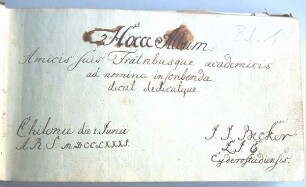 Hocce Album
Amicis suis Fratribusque academicis
ad nomina inscribenda
dicat dedicatque
Chilonii
J. J. Becker
A. R. S. MDCCLXXXI.
Eyderostadiensis.